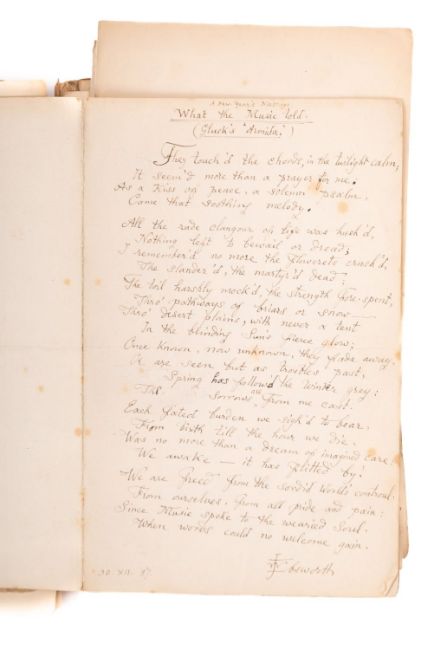 A New Year's
What the Music told.
(Gluck's "Armida.")
They touch'd the chords, in the twilight calm,
It seem'd more than a prayer for me.
As a Kiss on peace, a solemn psalm,
Came that soothing melody.
All the rude clangour of life was hush'd,
Nothing left to bewail or dread;
I remember'd no more the flowerets crush'd,
The slander'd, the martyr'd dead;
The toil harshly mock'd, the strength fore-spent,
Thro' pathways of briars or snow—
Thro' desert plains, with never a tent
In the blinding Sun's fierce glow;
Once known, now unknown, they fade away,
Or are seen but as troubles past,
Spring has follow'd the Winter grey:
The sorrows from me cast.
Each fated burden we sigh'd to bear
From birth till the hour we die.
Was no more than a dream of imagined care,
We awake — it has flitted by!
We are freed from the sordid World's controul,
From ourselves, from all pride and pain:
Since Music spoke to the wearied Soul,
When words could no welcome gain.
Ebsworth
30. XII.